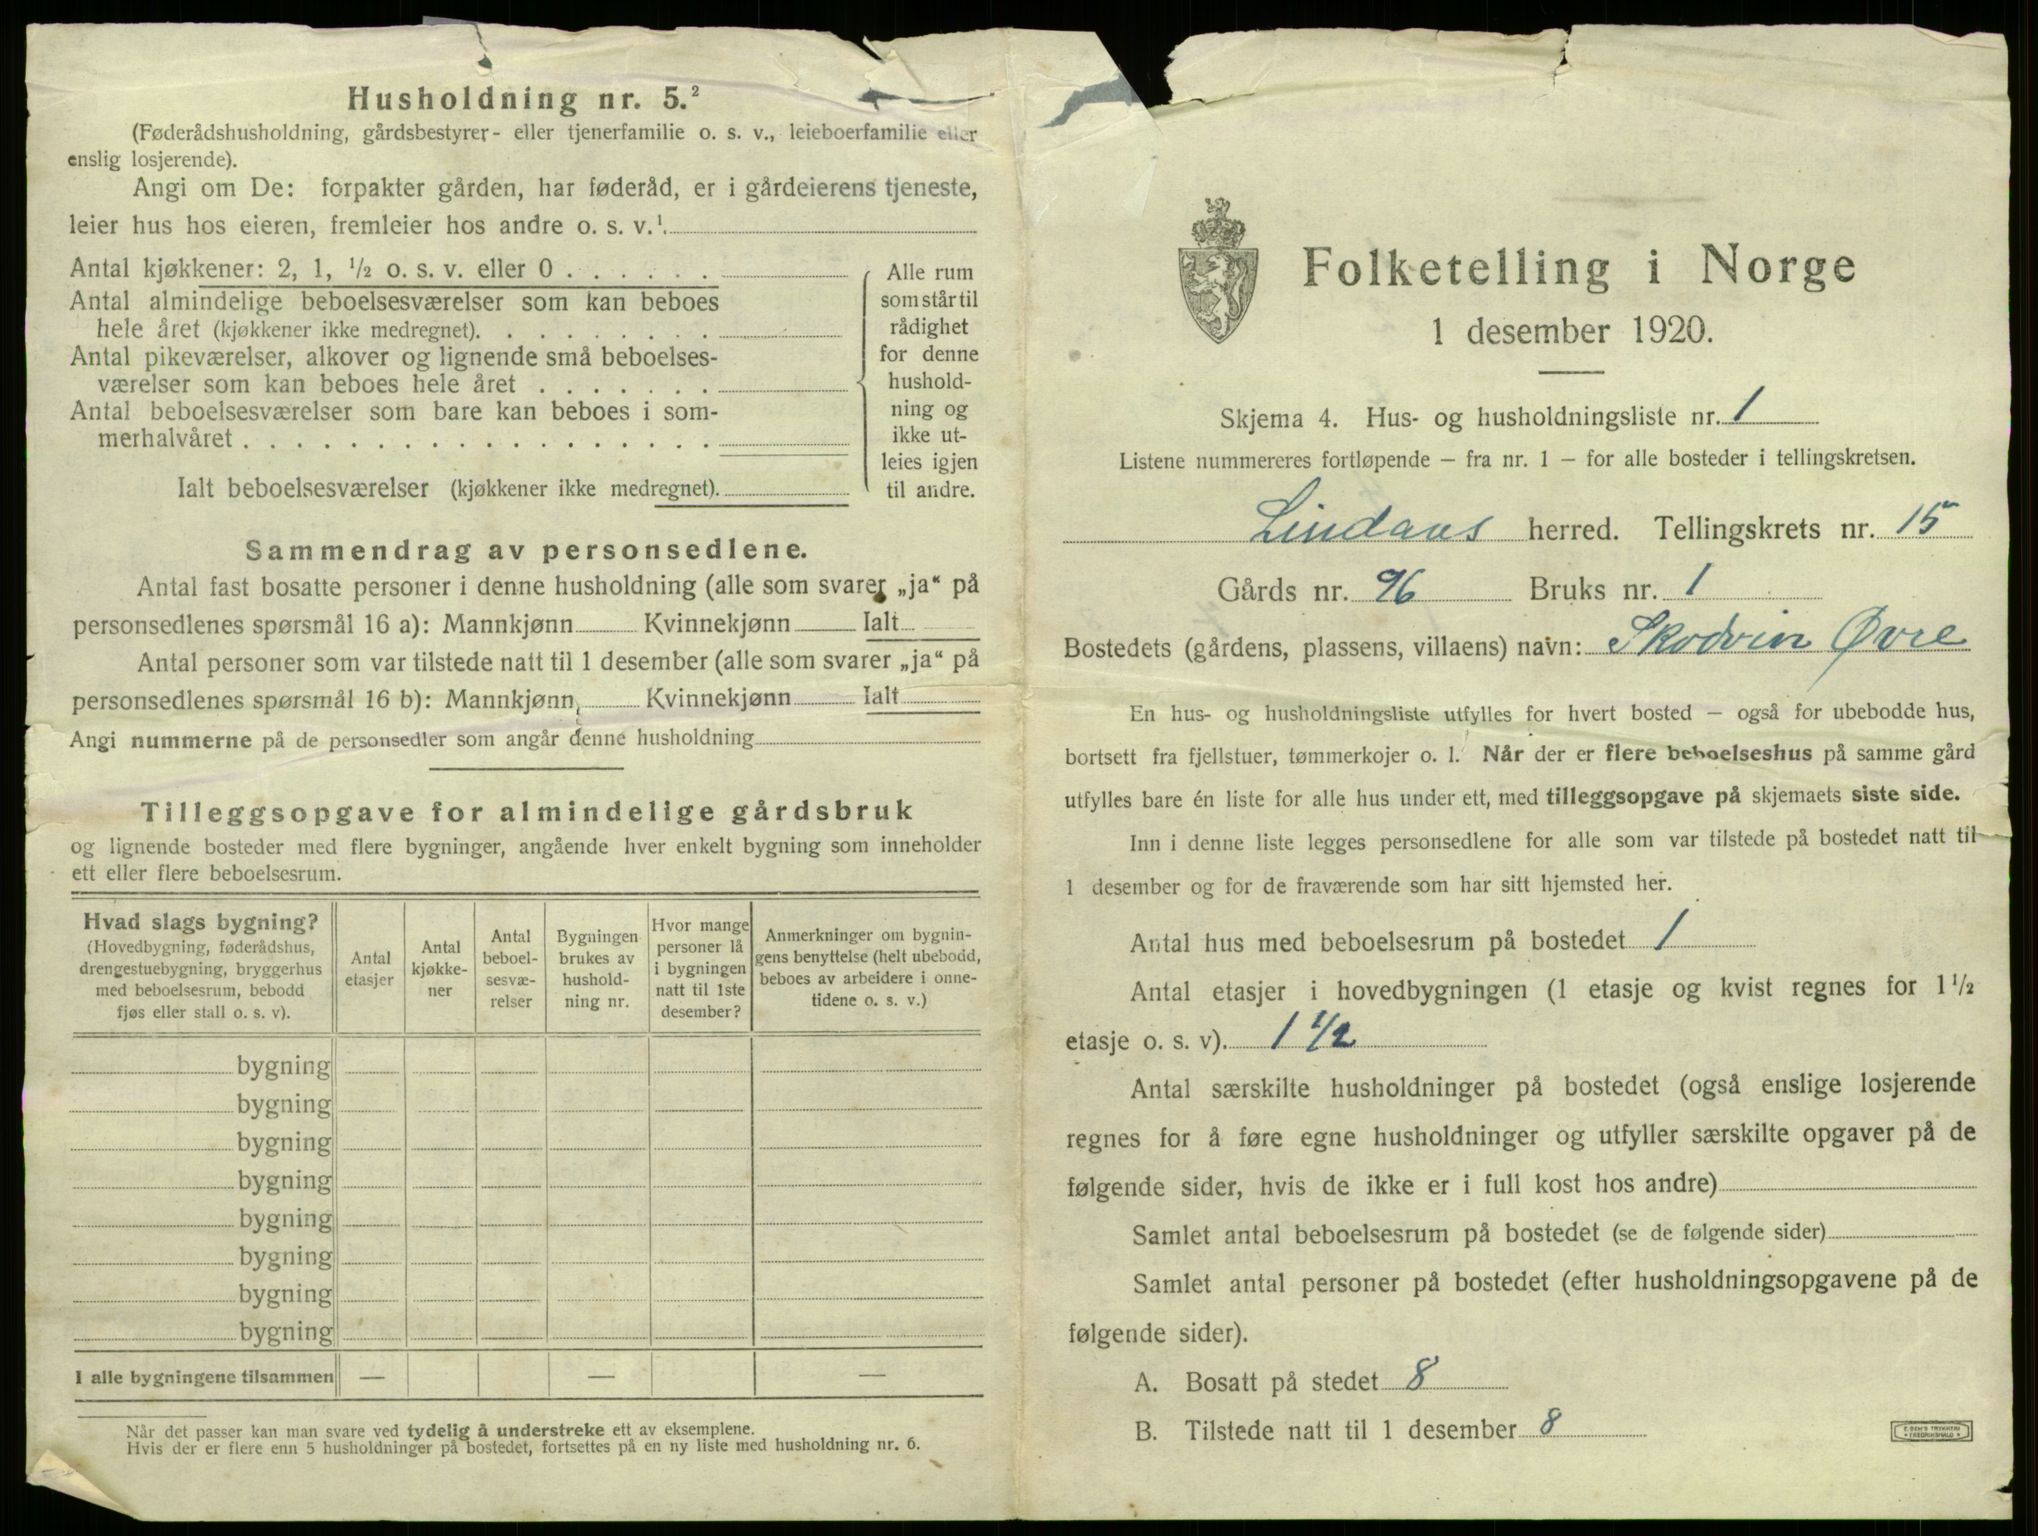 Husholdning nr. 5.²
(Føderådshusholdning, gårdsbestyrer- eller tjenerfamilie o. s. v., leieboerfamilie eller
enslig losjerende).
Angi om De: forpakter gården, har føderåd, er i gårdeierens tjeneste,
leier hus hos eieren, fremleier hos andre o. s. v.¹
Antal kjøkkener: 2, 1, ½ o. s. v. eller 0 . . . . . .
Antal almindelige beboelsesværelser som kan beboes
hele året (kjøkkener ikke medregnet). . . . . . . . .
Antal pikeværelser, alkover og lignende små beboelses-
værelser som kan beboes hele året . . . . . . .
Antal beboelsesværelser som bare kan beboes i som-
merhalvåret . . . . . . . . . . . . . . . . . .
Ialt beboelsesværelser (kjøkkener ikke medregnet).
Alle rum
som står til
rådighet
for denne
hushold-
ning og
ikke ut-
leies igjen
til andre.
Sammendrag av personsedlene.
Antal fast bosatte personer i denne husholdning (alle som svarer „ja“ på
personsedlenes spørsmål 16 a): Mannkjønn Kvinnekjønn Ialt
Antal personer som var tilstede natt til 1 desember (alle som svarer „ja“ på
personsedlenes spørsmål 16 b): Mannkjønn Kvinnekjønn Ialt
Angi nummerne på de personsedler som angår denne husholdning
Tilleggsopgave for almindelige gårdsbruk
og lignende bosteder med flere bygninger, angående hver enkelt bygning som inneholder
ett eller flere beboelsesrum.
Hvad slags bygning?
(Hovedbygning, føderådshus,
drengestuebygning, bryggerhus
med beboelsesrum, bebodd
fjøs eller stall o. s. v).
Antal
etasjer
Antal
kjøkke-
ner
Antal
beboel-
sesvæ-
relser
Bygningen
brukes av
hushold-
ning nr.
Hvor mange
personer lå
i bygningen
natt til 1ste
desember?
Anmerkninger om bygnin-
gens benyttelse (helt ubebodd,
beboes av arbeidere i onne-
tidene o. s. v.)
bygning
bygning
bygning
bygning
bygning
bygning
bygning
bygning
I alle bygningene tilsammen — — —
Når det passer kan man svare ved tydelig å understreke ett av eksemplene.
Hvis der er flere enn 5 husholdninger på bostedet, fortsettes på en ny liste med husholdning nr. 6.
Folketelling i Norge
1 desember 1920.
Skjema 4. Hus- og husholdningsliste nr. 1
Listene nummereres fortløpende — fra nr. 1 — for alle bosteder i tellingskretsen.
Lindaas herred. Tellingskrets nr. 15
Gårds nr. 96 Bruks nr. 1
Bostedets (gårdens, plassens, villaens) navn: Skodvin Øvre
En hus- og husholdningsliste utfylles for hvert bosted — også for ubebodde hus,
bortsett fra fjellstuer, tømmerkojer o. l. Når der er flere beboelseshus på samme gård
utfylles bare én liste for alle hus under ett, med tilleggsopgave på skjemaets siste side.
Inn i denne liste legges personsedlene for alle som var tilstede på bostedet natt til
1 desember og for de fraværende som har sitt hjemsted her.
Antal hus med beboelsesrum på bostedet 1
Antal etasjer i hovedbygningen (1 etasje og kvist regnes for 1½
etasje o. s. v). 1 ½
Antal særskilte husholdninger på bostedet (også enslige losjerende
regnes for å føre egne husholdninger og utfyller særskilte opgaver på de
følgende sider, hvis de ikke er i full kost hos andre)
Samlet antal beboelsesrum på bostedet (se de følgende sider)
Samlet antal personer på bostedet (efter husholdningsopgavene på de
følgende sider).
A. Bosatt på stedet 8
B. Tilstede natt til 1 desember 8